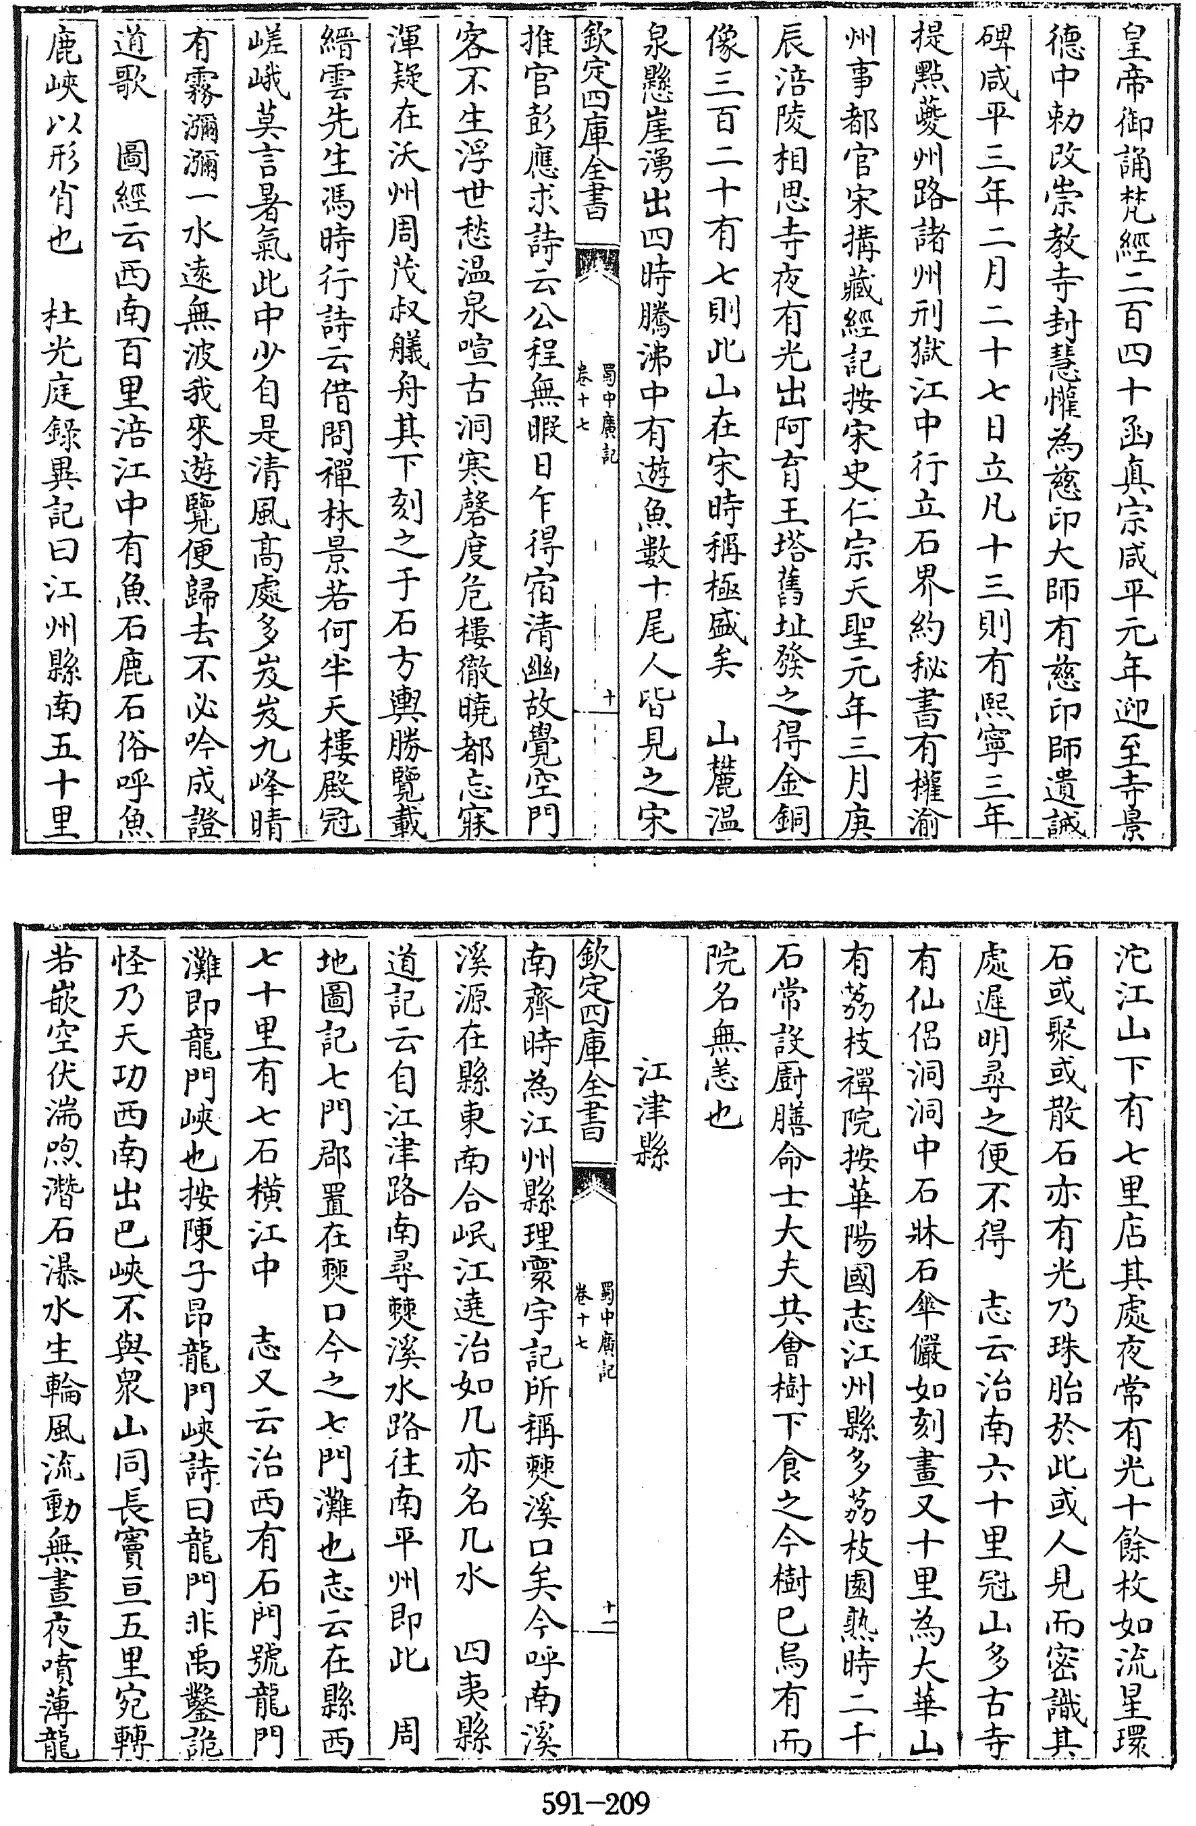 皇帝御誦梵經二百四十函真宗咸平元年迎至寺景
德中勅改崇教寺封慧懽為慈印大師有慈印師遺誡
碑咸平三年二月二十七日立凡十三則有熙寧三年
提點夔州路諸州刑獄江中行立石界約秘書有權渝
州事都官宋搆藏經記按宋史仁宗天聖元年三月庚
辰涪陵相思寺夜有光出阿育王塔舊址發之得金銅
像三百二十有七則此山在宋時稱極盛矣　山麓温
泉懸崖湧出四時騰沸中有遊魚數十尾人皆見之宋
欽定四庫全書
蜀中廣記
卷十七
十
推官彭應求詩云公程無暇日乍得宿清幽故覺空門
客不生浮世愁温泉喧古洞寒磬度危樓徹曉都忘寐
渾疑在沃州周茂叔艤舟其下刻之于石方輿勝覽載
縉雲先生馮時行詩云借問禪林景若何半天樓殿冠
嵯峨莫言暑氣此中少自是清風髙處多岌岌九峰晴
有霧瀰瀰一水遠無波我來遊覽便歸去不必吟成證
道歌　圖經云西南百里涪江中有魚石鹿石俗呼魚
鹿峽以形肖也　杜光庭錄異記曰江州縣南五十里
沱江山下有七里店其處夜常有光十餘枚如流星環
石或聚或散石亦有光乃珠胎於此或人見而密識其
處遲明尋之便不得　志云治南六十里冠山多古寺
有仙侣洞洞中石牀石傘儼如刻畫又十里為大華山
有荔枝禪院按華陽國志江州縣多荔枝園熟時二千
石常設厨膳命士大夫共會樹下食之今樹已烏有而
院名無恙也
江津縣
欽定四庫全書
蜀中廣記
卷十七
十一
南齊時為江州縣理寰宇記所稱僰溪口矣今呼南溪
溪源在縣東南合岷江遶治如几亦名几水　四夷縣
道記云自江津路南尋僰溪水路往南平州即此　周
地圖記七門郡置在僰口今之七門灘也志云在縣西
七十里有七石橫江中　志又云治西有石門號龍門
灘即龍門峽也按陳子昂龍門峽詩曰龍門非禹鑿詭
怪乃天功西南出巴峽不與衆山同長竇亘五里宛轉
若嵌空伏湍喣潛石瀑水生輪風流動無晝夜噴薄龍
591-209